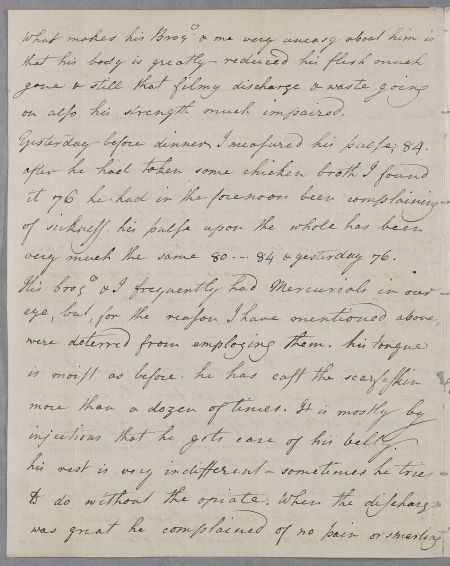 What makes his Bro.r & me very uneasy about him is
that his body is greatly reduced his flesh much
gone & still that filmy discharge & waste going
on also his strength much impaired.
Yesterday before dinner, I measured his pulse; 84.
after he had taken some chicken broth I found
it 76 he had in the forenoon been complaining
of sickness. his pulse upon the whole has been
very much the same 80 -- 84 & yesterday 76.
His bror & I frequently had Mercurials in our
eye, but, for the reason I have mentioned above,
were deterred from employing them. his tongue
is moist as before. he has cast the scarf=skin
more than a dozen of times. It is mostly by
injections that he gets ease of his belly
his rest is very indifferent – sometimes he tries
to do without the opiate. When the discharge
was great he complained of no pain or smarting